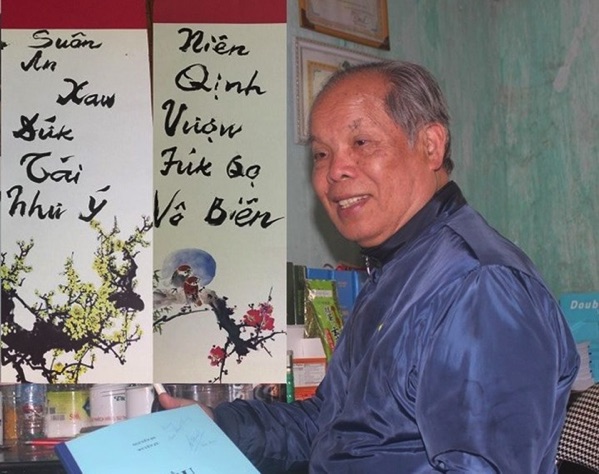 Suân
An
Xaw
Dúk
Tái
Như Ý
Niên
Qịnh
Vượw
Fúk Qọ
Vô Biên